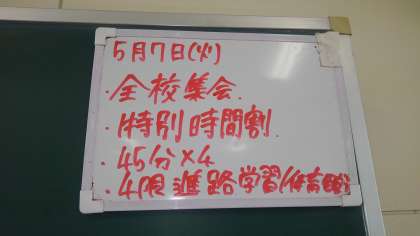 5月7日(火)
・全校集会.
・特別時間割.
・45分×4
・4限進路学習(体育館)